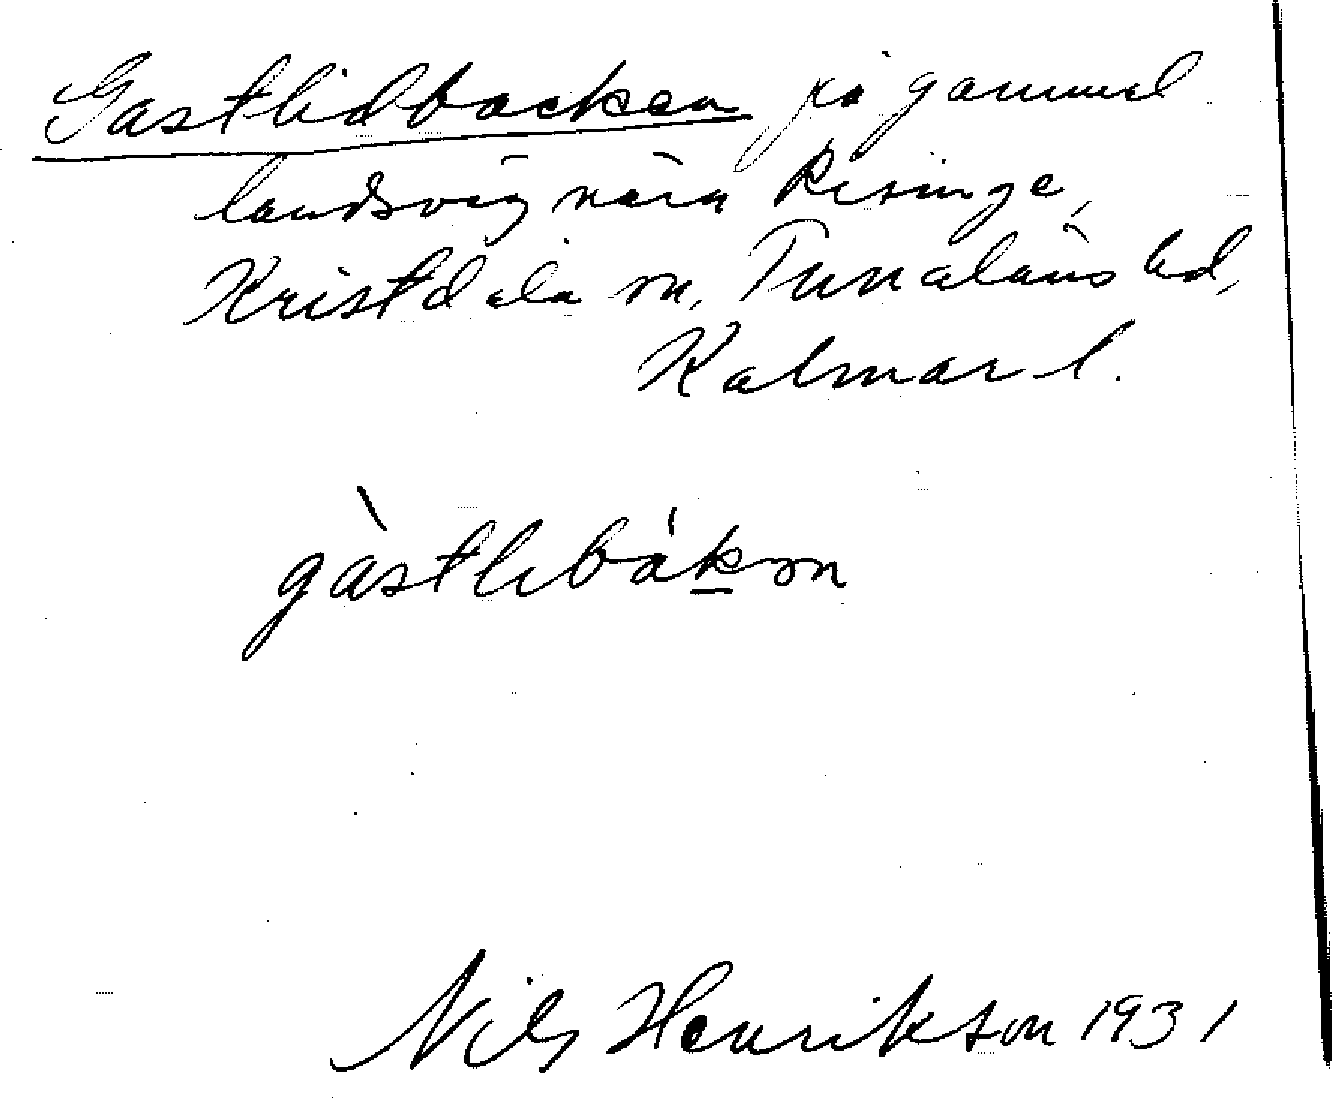 Gastlidbacken på gammal
landsväg nära Risinge,
Kristdala sn, Tunaläns hd,
Kalmar l.
gàstlebákon
Nils Henrikson 1931